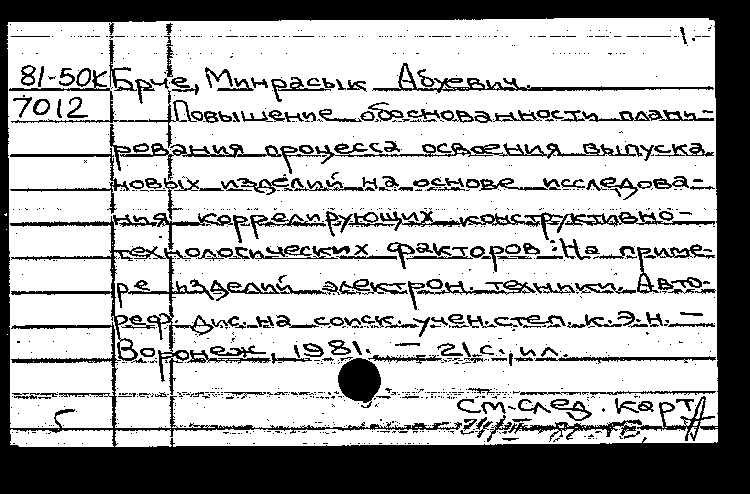 1.
81-50К Брче, Минрасык Абуевич.
7012 Повышение обоснованности плани-
рования процесса освоения выпуска
новых изделий на основе исследова-
ния коррелирующих конструктивно-
технологических факторов: На приме-
ре изделий электрон. техники. Авто-
реф. дис. на соиск. учен. степ. к.э.н. —
Воронеж, 1981. — 21 с., ил.
см. след. карт
5